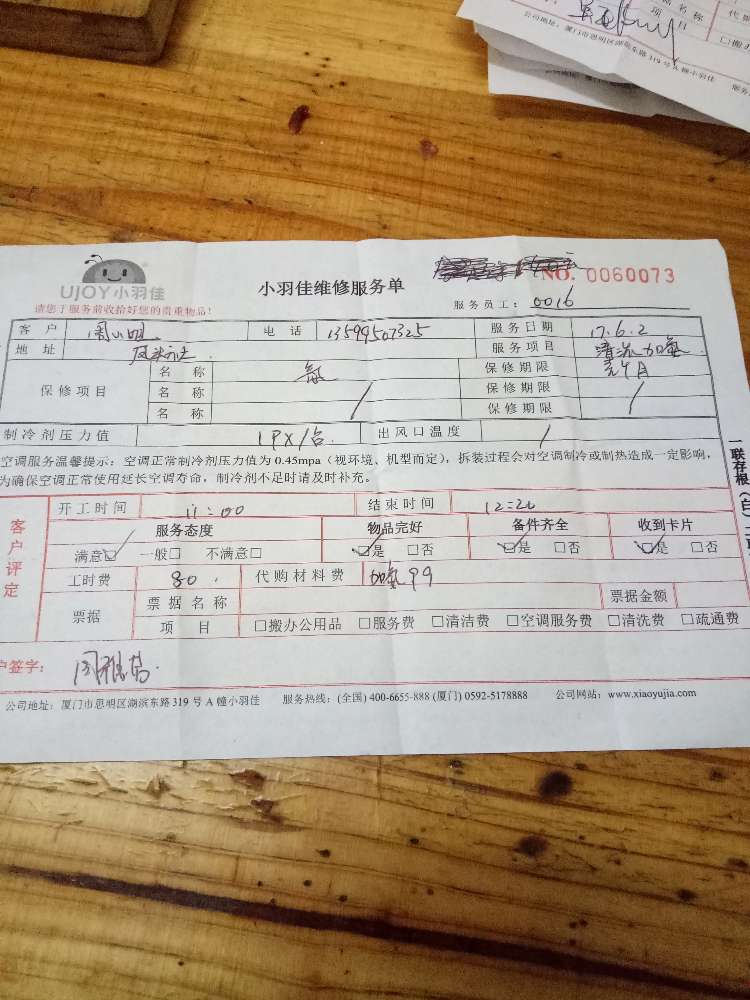 名称
代购
项目
□搬办
公司地址:厦门市思明区湖滨东路319号A幢小羽佳
服务
UJOY小羽佳
请您于服务前收拾好您的贵重物品!
小羽佳维修服务单
NO. 0060073
服务员工: 0016
客户 周小姐 电话 13599507325 服务日期 17.6.2
地址 服务项目 清洗加氟
保修项目 名称 氟 保修期限
名称 / 保修期限 /
名称 保修期限
制冷剂压力值 1PX1台 出风口温度 /
空调服务温馨提示:空调正常制冷剂压力值为0.45mpa(视环境、机型而定),拆装过程会对空调制冷或制热造成一定影响,
为确保空调正常使用延长空调寿命,制冷剂不足时请及时补充。
一联存根(白)
客户评定
开工时间 11:00 结束时间 12:20
服务态度 物品完好 备件齐全 收到卡片
满意☑ 一般□ 不满意□ ☑是 □否 ☑是 □否 ☑是 □否
工时费 80. 代购材料费 加氟99
票据 票据名称 票据金额
项目 □搬办公用品 □服务费 □清洁费 □空调服务费 □清洗费 □疏通费
户签字:
公司地址:厦门市思明区湖滨东路319号A幢小羽佳 服务热线:(全国) 400-6655-888 (厦门) 0592-5178888 公司网站:www.xiaoyujia.com